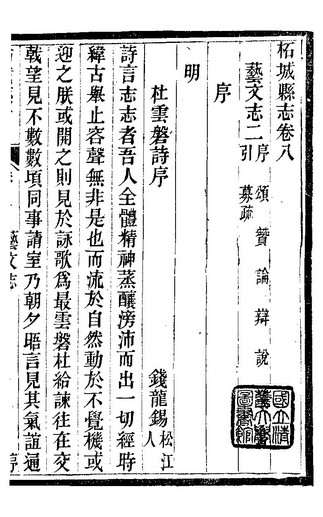 柘城縣志卷八
藝文志二序 頌 贊 論 辯 說
引 募疏
序
明
杜雲磐詩序
錢龍錫松江人
詩言志志者吾人全體精神蒸釀滂沛而出一切經時
緯古舉止容聲無非是也而流於自然動於不覺機或
迎之朕或開之則見於詠歌爲最雲磐杜給諫往在交
戟望見不數數頃同事請室乃朝夕晤言見其氣誼通
藝文志
序
國立清華大學圖書館